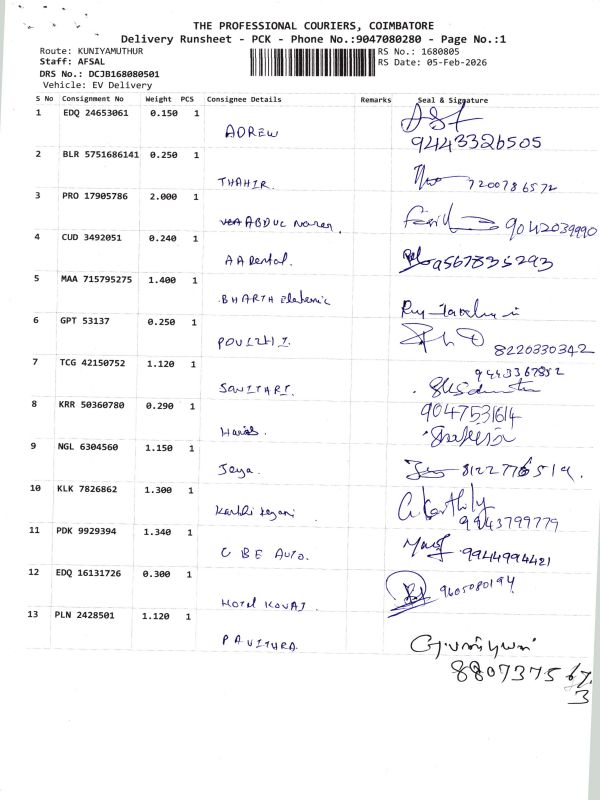 THE PROFESSIONAL COURIERS, COIMBATORE
Delivery Runsheet - PCK - Phone No.:9047080280 - Page No.:1
Route: KUNIYAMUTHUR
RS No.: 1680805
Staff: AFSAL
RS Date: 05-Feb-2026
DRS No.: DCJB168080501
Vehicle: EV Delivery
S No Consignment No Weight PCS Consignee Details Remarks Seal & Signature
1 EDQ 24653061 0.150 1
ADREW 9443326505
2 BLR 5751686141 0.250 1
THAHIR. 7200786572
3 PRO 17905786 2.000 1
ABDUL 9042039990
4 CUD 3492051 0.240 1
AA Dental. 9567835293
5 MAA 715795275 1.400 1
BHARTH
6 GPT 53137 0.250 1
8220330342
7 TCG 42150752 1.120 1
9443367852
SANITARI.
8 KRR 50360780 0.290 1
9047531614
Harish.
9 NGL 6304560 1.150 1
Jeya. 8122776519.
10 KLK 7826862 1.300 1
9943799779
11 PDK 9929394 1.340 1
C B E AUTO. 9944994421
12 EDQ 16131726 0.300 1
9605080194
HOTEL KOVAI.
13 PLN 2428501 1.120 1
PAVITHRA
8807375673